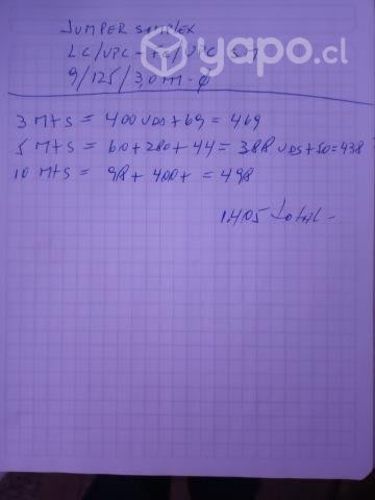 JUMPER SIMPLEX
yapo.cl
LC/UPC - FC/UPC SM
9/125/3,0 M-ϕ
3 MTS = 400 UDS + 69 = 469
5 MTS = 60 + 280 + 44 = 388 UDS + 50 = 438
10 MTS = 98 + 400+ = 498
1405 TOTAL -